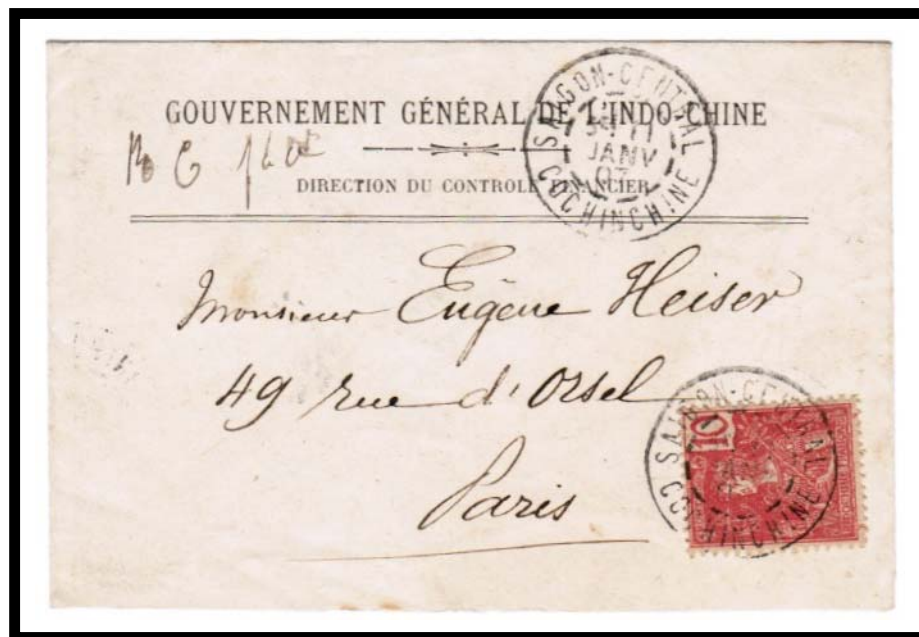 GOUVERNEMENT GÉNÉRAL DE L'INDO-CHINE
DIRECTION DU CONTROLE FINANCIER
SAIGON-CENTRAL
11
JANV
07
COCHINCHINE
Monsieur Eugène Heiser
49 rue d'Orsel
Paris
SAIGON-CENTRAL
COCHINCHINE
10